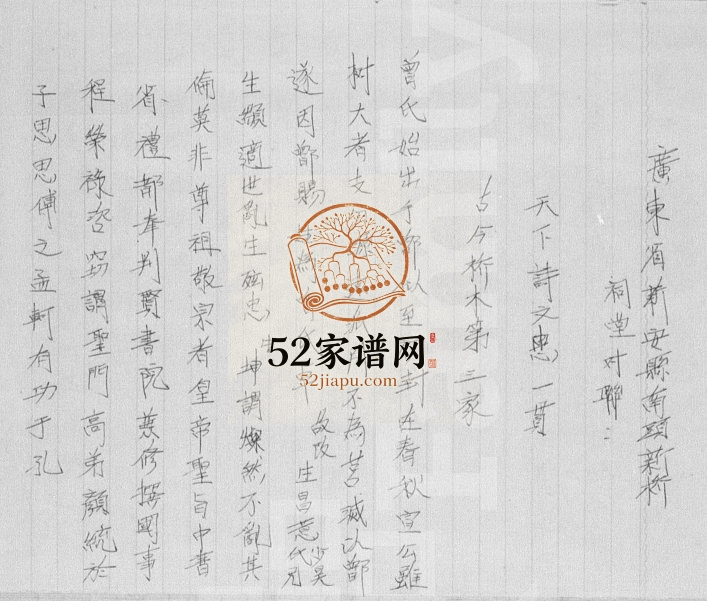 廣東省新安縣南頭新桥
祠堂对聯：
天下詩文忠一貫
古今桥木第三家
曾氏始出于 以至 封 在春秋宣公雖
樹大者支 不為莒滅以鄫
遂因鄫賜 故改 生昌意 少昊
生纈適世亂生 忠 坤謂燦然不亂其
倫莫非尊祖敬宗者皇帝聖旨中書
省禮部奉判賢書院兼修撰国事
程榮祿咨竊謂聖門高弟顏統於
子思思傳之孟軻有功于孔
52家谱网
52jiapu.com